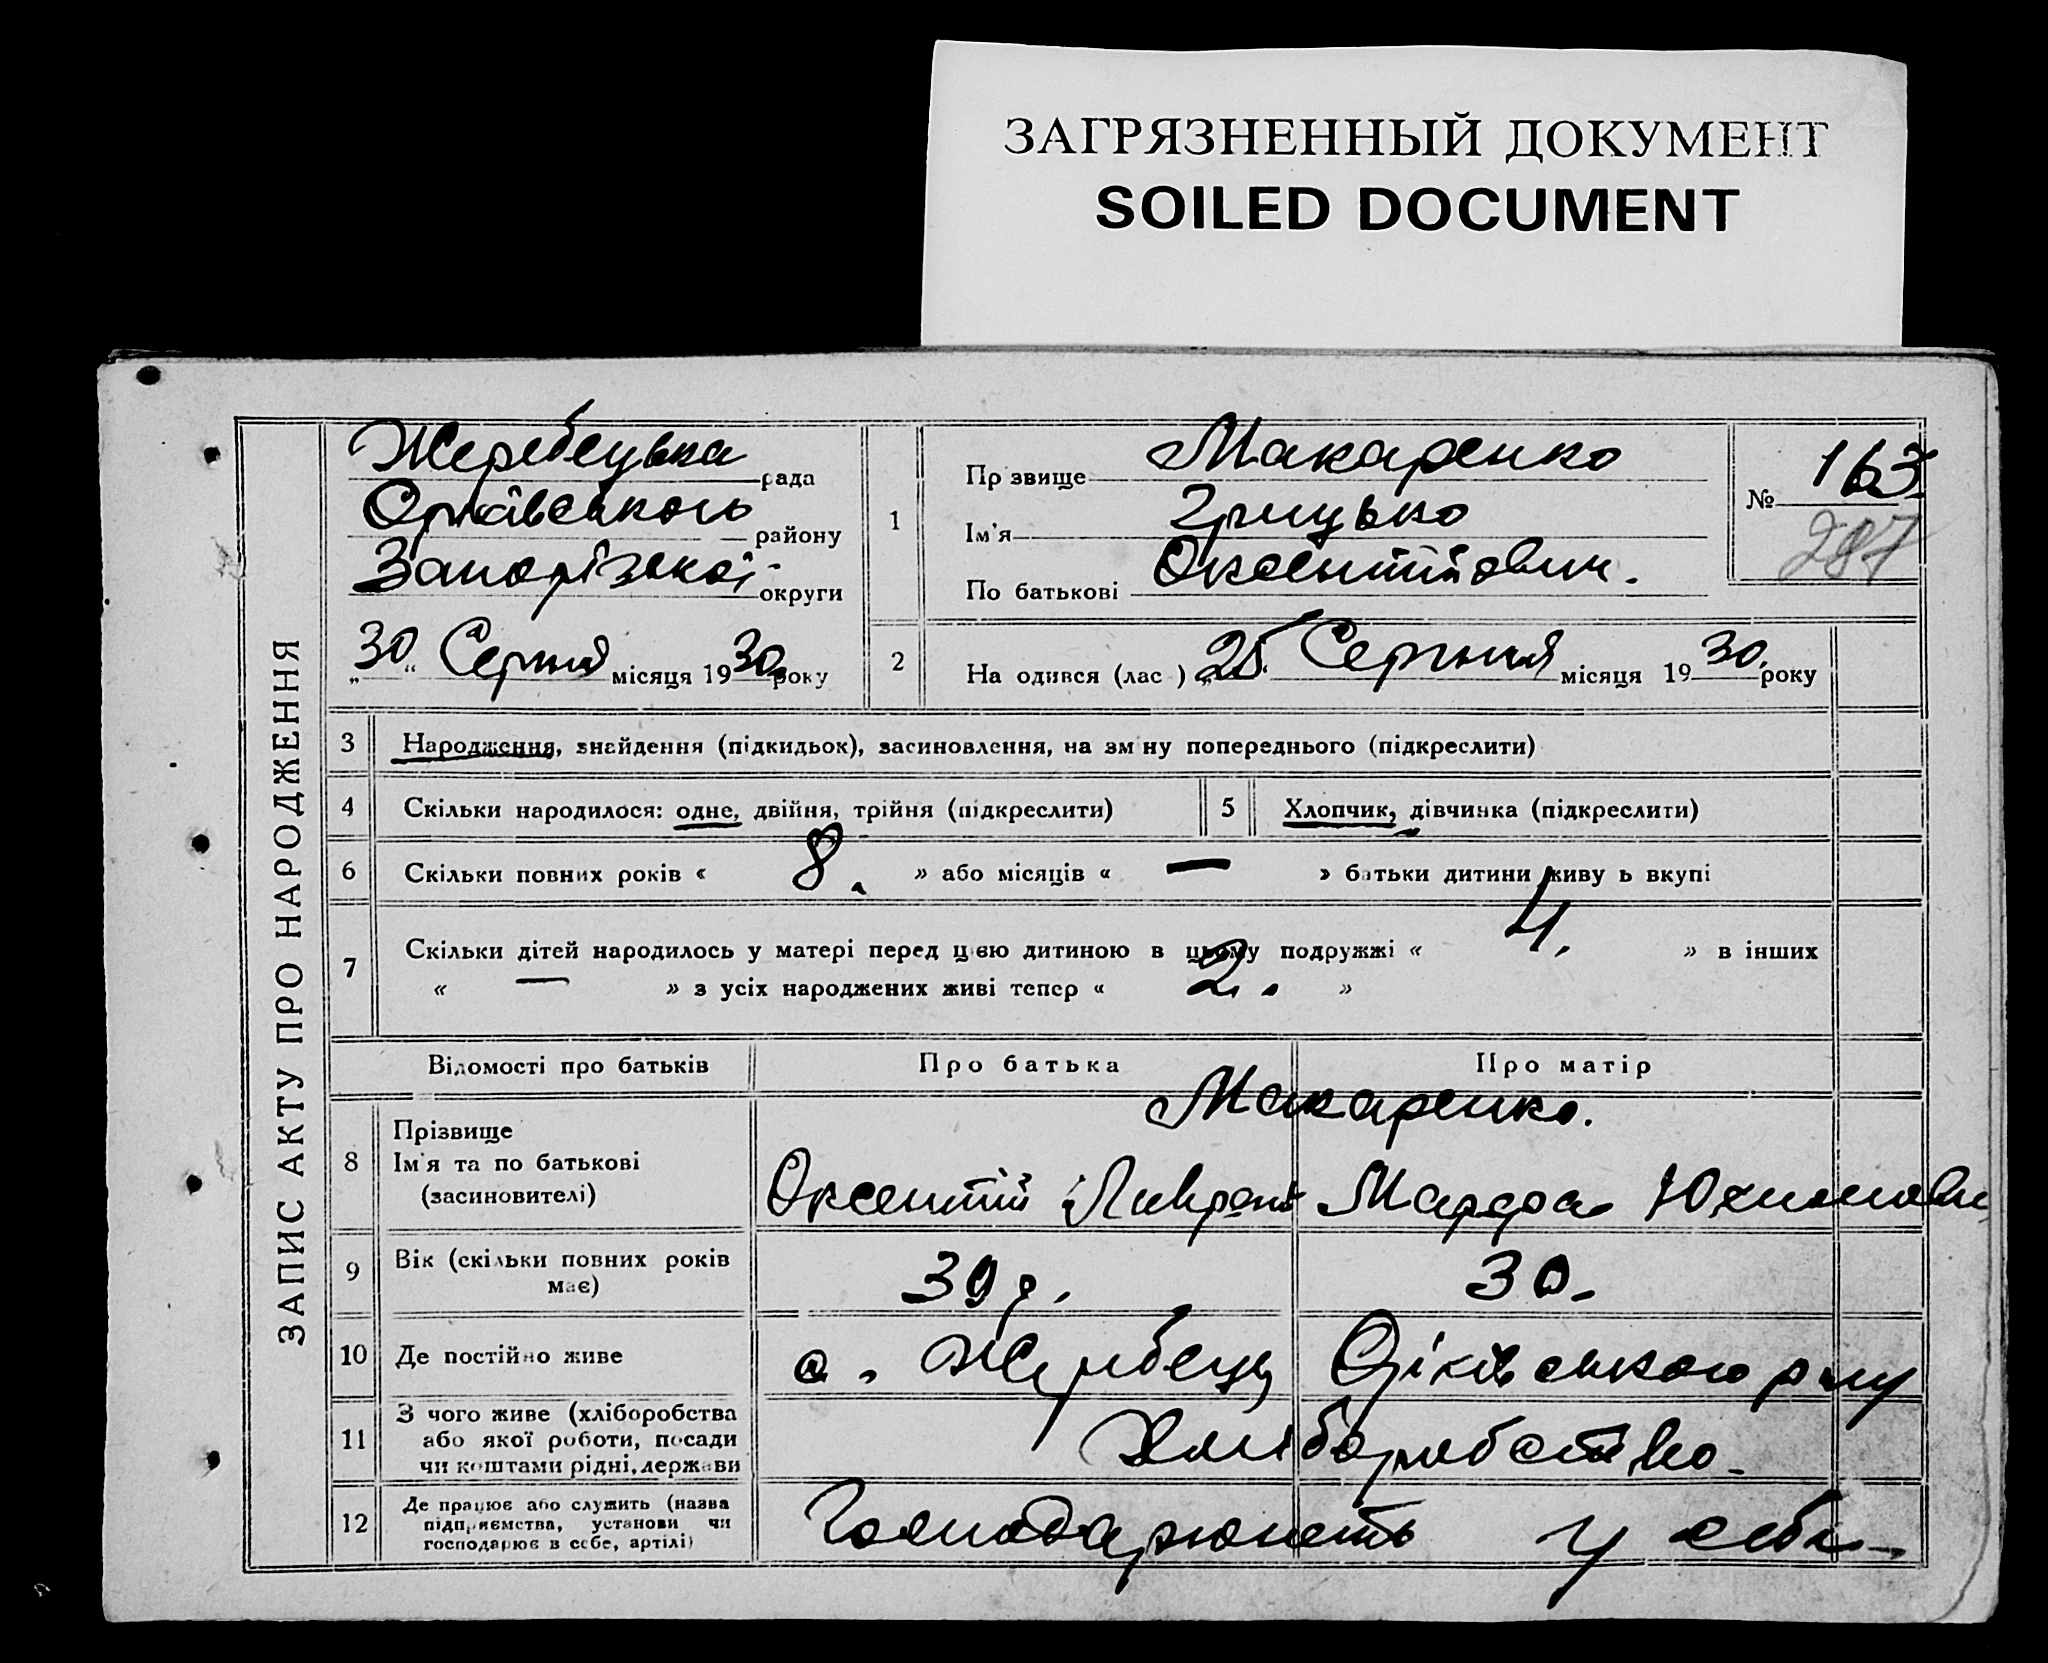 ЗАГРЯЗНЕННЫЙ ДОКУМЕНТ
SOILED DOCUMENT
ЗАПИС АКТУ ПРО НАРОДЖЕННЯ
Жеребецька рада
Оріхівського району
Запорізької округи
„30“ Серпня місяця 1930 року
1
Пр звище Макаренко
Ім'я Грицько
По батькові Оксентійович.
№ 163
287
2
На одився (лас ) „25“ Серпня місяця 1930. року
3 Народження, знайдення (підкидьок), засиновлення, на зм ну попереднього (підкреслити)
4 Скільки народилося: одне, двійня, трійня (підкреслити)
5 Хлопчик, дівчинка (підкреслити)
6 Скільки повних років « 8. » або місяців « — » батьки дитини живу ь вкупі
7 Скільки дітей народилось у матері перед цією дитиною в цьому подружжі « 4. » в інших
« — » з усіх народжених живі тепер « 2. »
Відомості про батьків Про батька Про матір
8 Прізвище
Ім'я та по батькові
(засиновителі)
Макаренко.
Оксентій Лавренt Марфа Юхимовн
9 Вік (скільки повних років
має)
39 р. 30.
10 Де постійно живе с. Жеребець Оріхівського р-ну
11 З чого живе (хліборобства
або якої роботи, посади
чи коштами рідні, держави
Хліборобство.
12 Де працює або служить (назва
підприємства, установи чи
господарює в себе, артілі)
Господарюють у себе.